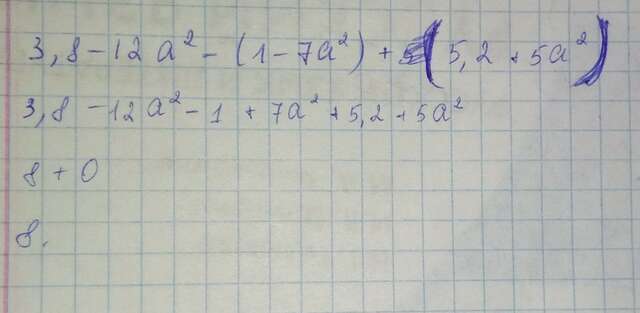 3,8 - 12a² - (1 - 7a²) + (5,2 + 5a²)
3,8 - 12a² - 1 + 7a² + 5,2 + 5a²
8 + 0
8.